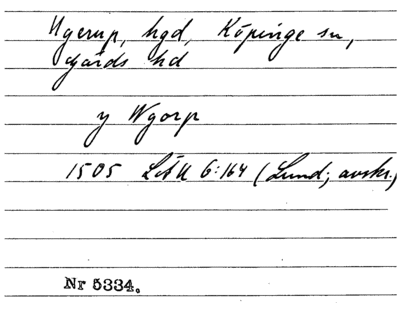 Ugerup, hgd, Köpinge sn,
Gärds hd
y Wgorp
1505 LÄU 6:164 (Lund; avskr.)
Nr 5334.